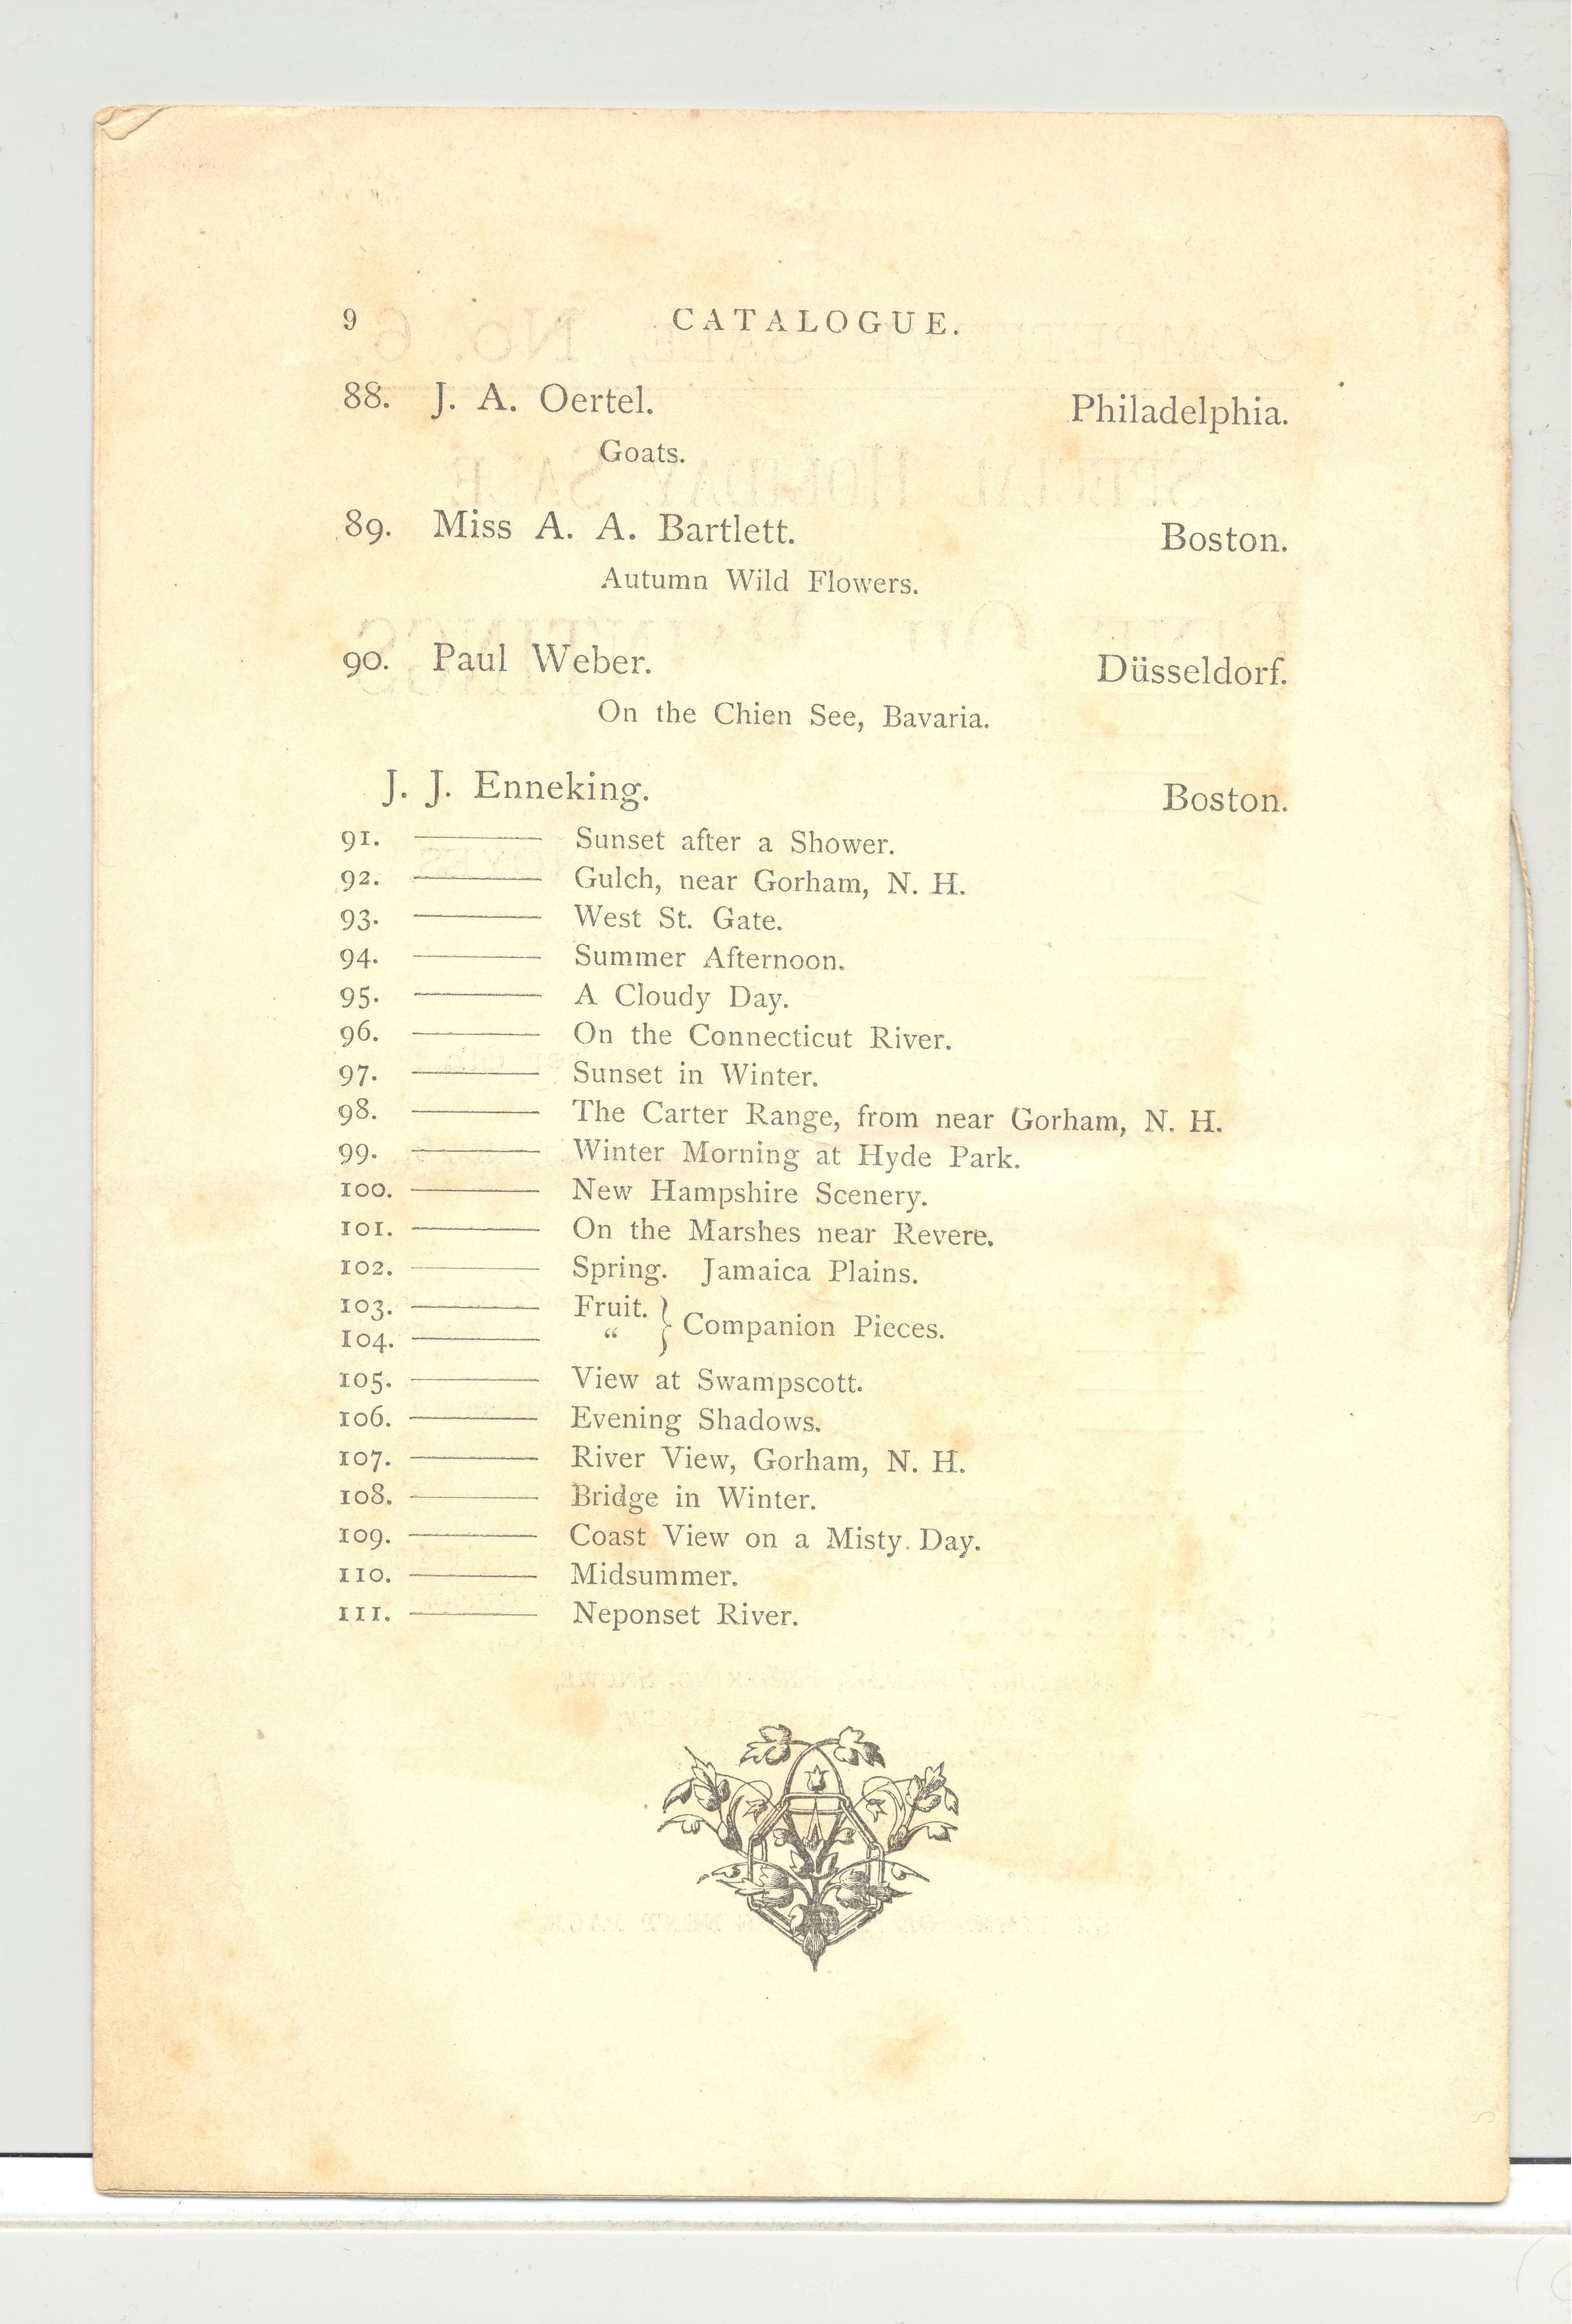 9 CATALOGUE.
88. J. A. Oertel. Philadelphia.
Goats.
89. Miss A. A. Bartlett. Boston.
Autumn Wild Flowers.
90. Paul Weber. Düsseldorf.
On the Chien See, Bavaria.
J. J. Enneking. Boston.
91. ——— Sunset after a Shower.
92. ——— Gulch, near Gorham, N. H.
93. ——— West St. Gate.
94. ——— Summer Afternoon.
95. ——— A Cloudy Day.
96. ——— On the Connecticut River.
97. ——— Sunset in Winter.
98. ——— The Carter Range, from near Gorham, N. H.
99. ——— Winter Morning at Hyde Park.
100. ——— New Hampshire Scenery.
101. ——— On the Marshes near Revere.
102. ——— Spring. Jamaica Plains.
103. ——— Fruit. } Companion Pieces.
104. ——— “
105. ——— View at Swampscott.
106. ——— Evening Shadows.
107. ——— River View, Gorham, N. H.
108. ——— Bridge in Winter.
109. ——— Coast View on a Misty Day.
110. ——— Midsummer.
111. ——— Neponset River.